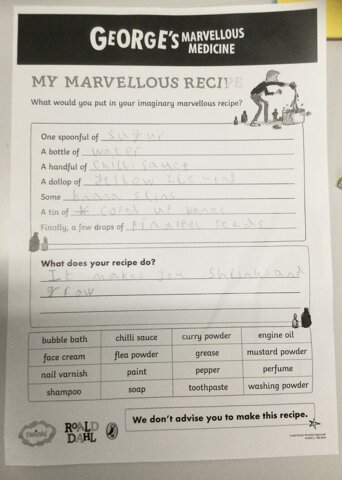 GEORGE'S MARVELLOUS
MEDICINE
MY MARVELLOUS RECIPE
What would you put in your imaginary marvellous recipe?
One spoonful of sugur
A bottle of water
A handful of chilli sauce
A dollop of yellow
Some
A tin of up
Finally, a few drops of pinappel seeds
What does your recipe do?
It makes you shrink and
grow
bubble bath chilli sauce curry powder engine oil
face cream flea powder grease mustard powder
nail varnish paint pepper perfume
shampoo soap toothpaste washing powder
We don't advise you to make this recipe.
twinkl
ROALD
DAHL